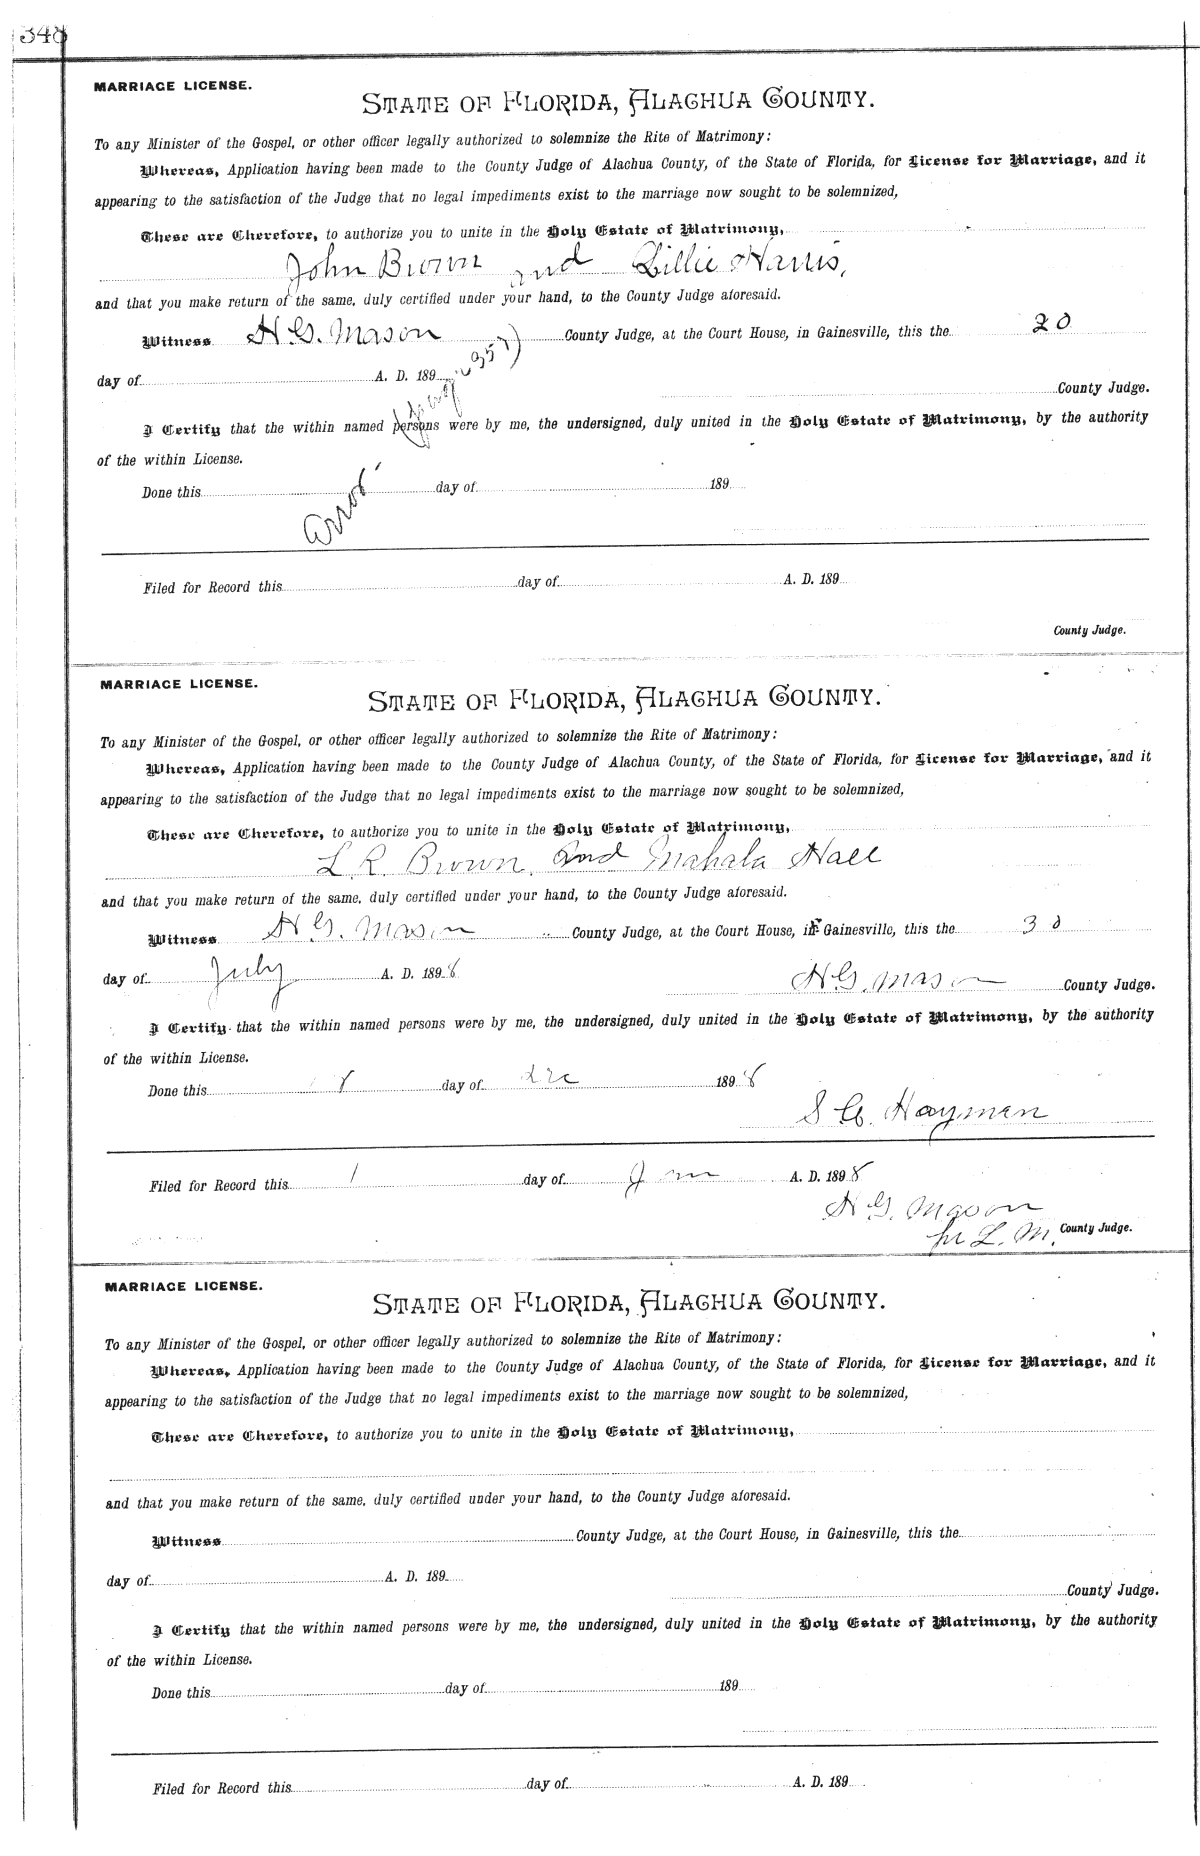 348
MARRIAGE LICENSE.
STATE OF FLORIDA, ALACHUA COUNTY.
To any Minister of the Gospel, or other officer legally authorized to solemnize the Rite of Matrimony:
Whereas, Application having been made to the County Judge of Alachua County, of the State of Florida, for License for Marriage, and it
appearing to the satisfaction of the Judge that no legal impediments exist to the marriage now sought to be solemnized,
These are Therefore, to authorize you to unite in the Holy Estate of Matrimony,
John Brown and Lillie Harris,
and that you make return of the same, duly certified under your hand, to the County Judge aforesaid.
Witness H G. Mason County Judge, at the Court House, in Gainesville, this the 20
day of A. D. 189
County Judge.
(page 357)
I Certify that the within named persons were by me, the undersigned, duly united in the Holy Estate of Matrimony, by the authority
of the within License.
Done this day of 189
Error
Filed for Record this day of A. D. 189
County Judge.
MARRIAGE LICENSE.
STATE OF FLORIDA, ALACHUA COUNTY.
To any Minister of the Gospel, or other officer legally authorized to solemnize the Rite of Matrimony:
Whereas, Application having been made to the County Judge of Alachua County, of the State of Florida, for License for Marriage, and it
appearing to the satisfaction of the Judge that no legal impediments exist to the marriage now sought to be solemnized,
These are Therefore, to authorize you to unite in the Holy Estate of Matrimony,
L. R. Brown and Mahala Hall
and that you make return of the same, duly certified under your hand, to the County Judge aforesaid.
Witness H G. Mason County Judge, at the Court House, in Gainesville, this the 30
day of July A. D. 1898
H G. Mason County Judge.
I Certify that the within named persons were by me, the undersigned, duly united in the Holy Estate of Matrimony, by the authority
of the within License.
Done this day of Dec 1898
S G. Hayman
Filed for Record this 1 day of A. D. 1898
H G. Mason
pr L. M. County Judge.
MARRIAGE LICENSE.
STATE OF FLORIDA, ALACHUA COUNTY.
To any Minister of the Gospel, or other officer legally authorized to solemnize the Rite of Matrimony:
Whereas, Application having been made to the County Judge of Alachua County, of the State of Florida, for License for Marriage, and it
appearing to the satisfaction of the Judge that no legal impediments exist to the marriage now sought to be solemnized,
These are Therefore, to authorize you to unite in the Holy Estate of Matrimony,
and that you make return of the same, duly certified under your hand, to the County Judge aforesaid.
Witness County Judge, at the Court House, in Gainesville, this the
day of A. D. 189
County Judge.
I Certify that the within named persons were by me, the undersigned, duly united in the Holy Estate of Matrimony, by the authority
of the within License.
Done this day of 189
Filed for Record this day of A. D. 189